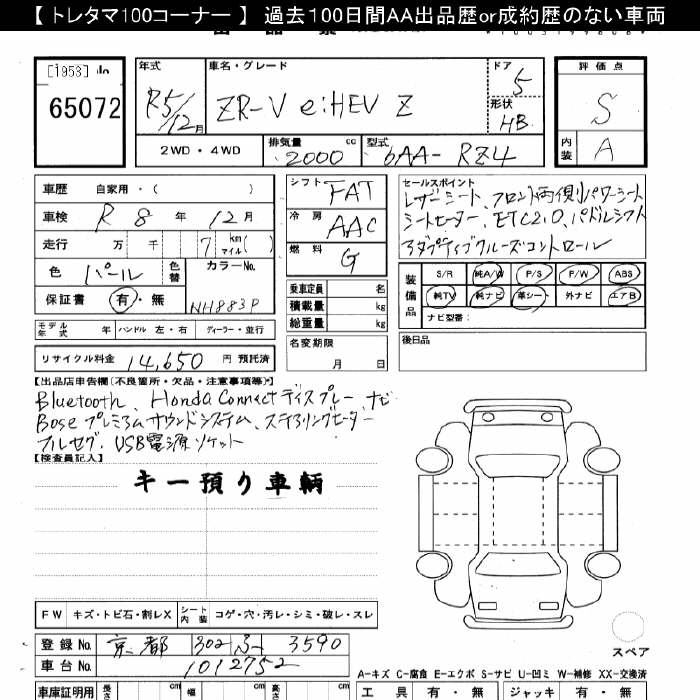 【 トレタマ100コーナー 】 過去100日間AA出品歴or成約歴のない車両
[1953]
65072
年式
R5/12月
車名・グレード
ZR-V e:HEV Z
ドア
5
形状
HB
評価点
S
内装
A
2WD・4WD
排気量
2000
cc
型式
6AA-RZ4
車歴 自家用・( )
車検 R 8 年 12 月
走行 万 千 7 km マイル( )
色 パール 色替 カラーNo.
NH883P
保証書 有・無
シフト FAT
冷房 AAC
燃料 G
乗車定員 名
積載量 kg
総重量 kg
名変期限
月 日
セールスポイント
レザーシート、フロント両側パワーシート
シートヒーター、ETC2.0、パドルシフト
アダプティブクルーズコントロール
装備品
S/R 純A/W P/S P/W ABS
純TV 純ナビ 革シート 外ナビ エアB
ナビ型番:
モデル年式 年 ハンドル 左・右 ディーラー・並行
リサイクル料金 14,650 円 預託済
後日品
【出品店申告欄(不良箇所・欠品・注意事項等)】
Bluetooth、Honda Connectディスプレー、ナビ
Boseプレミアムサウンドシステム、ステアリングヒーター
フルセグ、USB電源ソケット
【検査員記入】
キー預り車輌
FW キズ・トビ石・割レX シート内装 コゲ・穴・汚レ・シミ・破レ・スレ
登録No. 京都 302 ふ 3590
車台No. 1012752
スペア
A-キズ C-腐食 E-エクボ S-サビ U-凹ミ W-補修 XX-交換済
車庫証明用 長さ cm 幅 cm 高さ cm
工具 有・無 ジャッキ 有・無